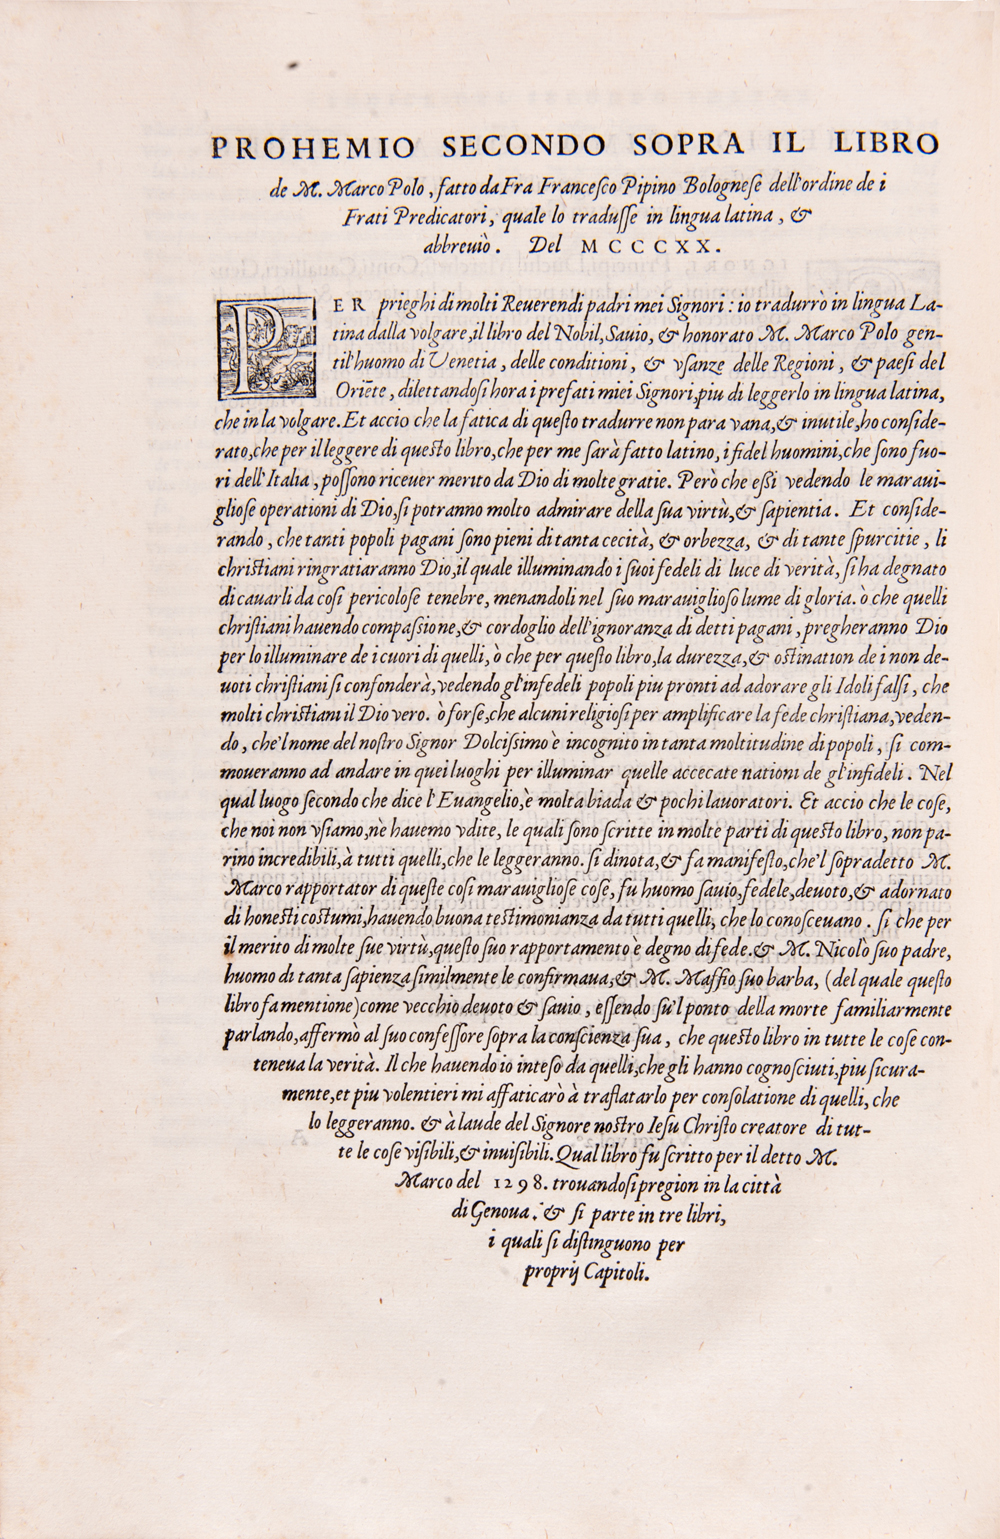 PROHEMIO SECONDO SOPRA IL LIBRO
de M. Marco Polo, fatto da Fra Francesco Pipino Bolognese dell'ordine de i
Frati Predicatori, quale lo tradusse in lingua latina, &
abbreuiò. Del MCCCXX.
PER prieghi di molti Reuerendi padri mei Signori: io tradurrò in lingua La-
tina dalla volgare, il libro del Nobil, Sauio, & honorato M. Marco Polo gen-
til'huomo di Venetia, delle conditioni, & vsanze delle Regioni, & paesi del
Oriẽte, dilettandosi hora i prefati miei Signori, piu di leggerlo in lingua latina,
che in la volgare. Et accio che la fatica di questo tradurre non para vana, & inutile, ho conside-
rato, che per il leggere di questo libro, che per me sarà fatto latino, i fidel huomini, che sono fuo-
ri dell'Italia, possono riceuer merito da Dio di molte gratie. Però che essi vedendo le maraui-
gliose operationi di Dio, si potranno molto admirare della sua virtù, & sapientia. Et conside-
rando, che tanti popoli pagani sono pieni di tanta cecità, & orbezza, & di tante spurcitie, li
christiani ringratiaranno Dio, il quale illuminando i suoi fedeli di luce di verità, si ha degnato
di cauarli da cosi pericolose tenebre, menandoli nel suo marauiglioso lume di gloria. ò che quelli
christiani hauendo compassione, & cordoglio dell'ignoranza di detti pagani, pregheranno Dio
per lo illuminare de i cuori di quelli, ò che per questo libro, la durezza, & ostination de i non de-
uoti christiani si confonderà, vedendo gl'infedeli popoli piu pronti ad adorare gli Idoli falsi, che
molti christiani il Dio vero. ò forse, che alcuni religiosi per amplificare la fede christiana, veden-
do, che'l nome del nostro Signor Dolcissimo è incognito in tanta moltitudine di popoli, si com-
moueranno ad andare in quei luoghi per illuminar quelle accecate nationi de gl'infideli. Nel
qual luogo secondo che dice l'Euangelio, è molta biada & pochi lauoratori. Et accio che le cose,
che noi non vsiamo, nè hauemo vdite, le quali sono scritte in molte parti di questo libro, non pa-
rino incredibili, à tutti quelli, che le leggeranno. si dinota, & fa manifesto, che'l sopradetto M.
Marco rapportator di queste cosi marauigliose cose, fu huomo sauio, fedele, deuoto, & adornato
di honesti costumi, hauendo buona testimonianza da tutti quelli, che lo conosceuano. si che per
il merito di molte sue virtù, questo suo rapportamento è degno di fede. & M. Nicolò suo padre,
huomo di tanta sapienza similmente le confirmaua, & M. Maffio suo barba, (del quale questo
libro fa mentione) come vecchio deuoto & sauio, essendo su'l ponto della morte familiarmente
parlando, affermò al suo confessore sopra la conscienza sua, che questo libro in tutte le cose con-
teneua la verità. Il che hauendo io inteso da quelli, che gli hanno cognosciuti, piu sicura-
mente, et piu volentieri mi affaticarò à traslatarlo per consolatione di quelli, che
lo leggeranno. & à laude del Signore nostro Iesu Christo creatore di tut-
te le cose visibili, & inuisibili. Qual libro fu scritto per il detto M.
Marco del 1298. trouandosi pregion in la città
di Genoua. & si parte in tre libri,
i quali si distinguono per
proprij Capitoli.